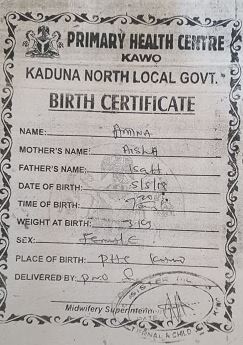 PRIMARY HEALTH CENTRE
KAWO
KADUNA NORTH LOCAL GOVT.
BIRTH CERTIFICATE
NAME: AMINA
MOTHER'S NAME: AISHA
FATHER'S NAME: Isah
DATE OF BIRTH: 5/5/18
TIME OF BIRTH: 7
WEIGHT AT BIRTH: 3kg
SEX: Female
PLACE OF BIRTH: PHC Kawo
DELIVERED BY:
Midwifery Superinten